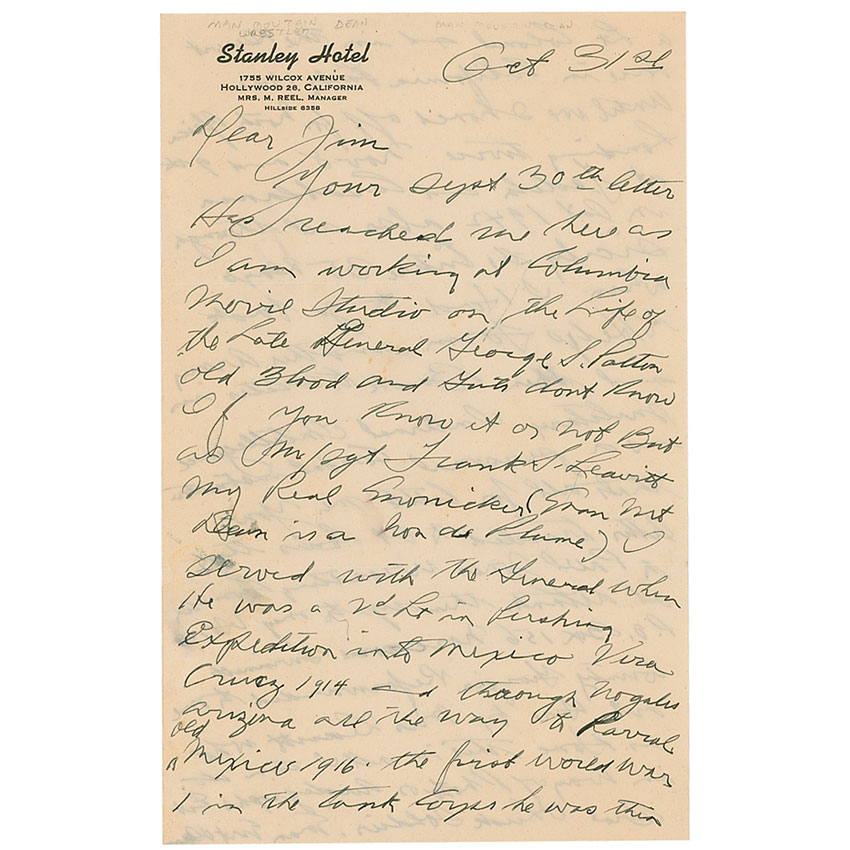 MAN MOUTAIN DEAN MAN MOUNTAIN DEAN
WRESTLER
Stanley Hotel
1755 WILCOX AVENUE
HOLLYWOOD 28, CALIFORNIA
MRS. M. REEL, MANAGER
HILLSIDE 8358
Oct 31st
Dear Jim
Your Sept 30th letter
Has reached me here as
I am working at Columbia
Movie Studio on the Life of
the Late General George S. Patton
old Blood and Guts dont Know
If you Know it or not But
as M/sgt Frank S. Leavitt
My Real monicker (Man Mt
Dean is a non de Plume) I
served with the General when
He was a 2d Lt in Pershing
Expedition into Mexico Vera
Cruz 1914 and through Nogales
arizona all the way to Parral
old
Mexico 1916. the first world war
1 in the tank Corps he was then